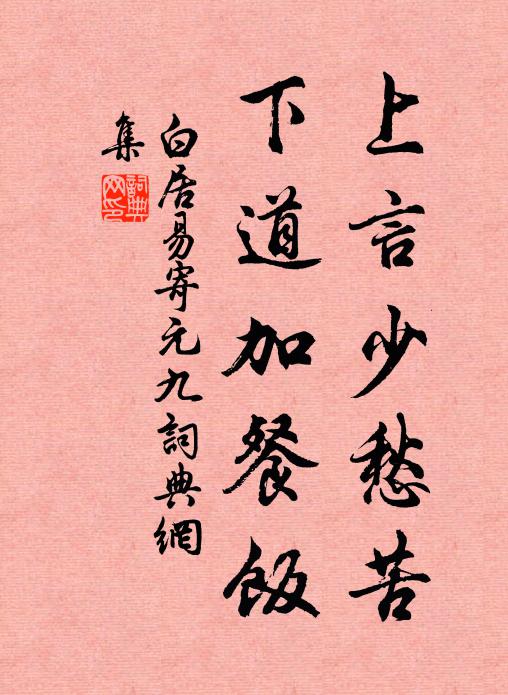 上言少愁苦
下道加餐飯
白居易寄元九詞典網
集
詞典網印